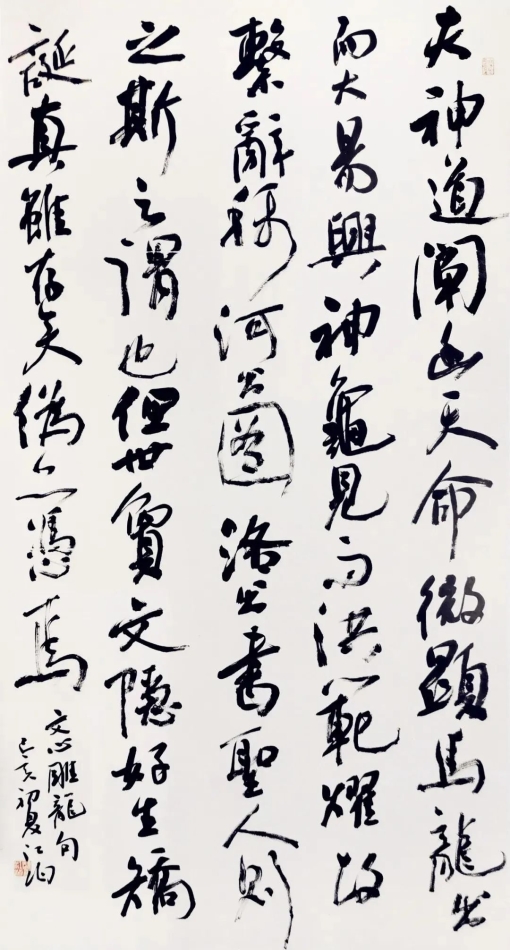 夫神道闡幽天命微顯馬龍出
而大易興神龜見而洪範耀故
繫辭稱河出圖洛出書聖人則
之斯之謂也但世敻文隱好生矯
誕真雖存矣偽亦憑焉
文心雕龍句
己亥初夏江